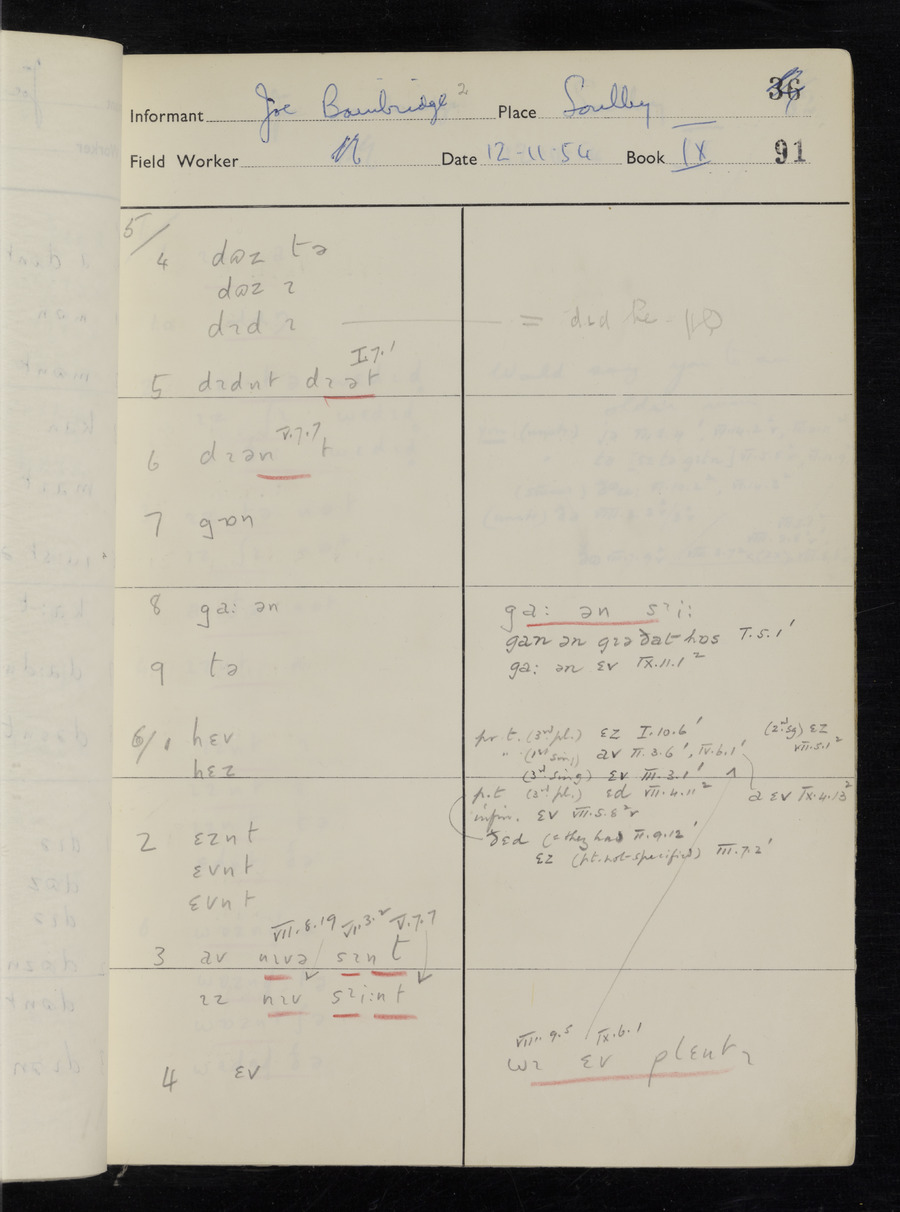 Informant Joe Bainbridge 2 Place Soulby 36
Field Worker Date 12-11-54 Book IX 91
5/
4 dɷz tə
dɷz ɪ
dɪd ɪ = did he
I.7.1
5 dɪdnt dɪət
V.7.7
6 dɪən t
7 gɒn
8 ga: ən ga: ən sɪi:
gan ən gɪə ðat hɒs I.5.1'
9 tə ga: ən ɛv IX.11.1²
6/1 hɛv pr.t. (3rd pl.) ɛz I.10.6' (2nd sg) ɛz VII.5.1²
" (1st sing) av II.3.6', IV.6.1'
hɛz (3rd sing) ɛv III.3.1'
p.t (3rd pl.) ɛd VII.4.11² a ɛv IX.4.13²
infin. ɛv VII.5.8²
2 ɛznt ðɛd (= they had II.9.12'
ɛz (pt. not specified) III.7.2'
ɛvnt
ɛvnt
VII.8.19 VI.3.2 V.7.7
3 av nɪvə sɪn t
ɪz nɪv sɪi:n t
VIII.9.5 IX.6.1
wɪ ɛv plɛntɪ
4 ɛv